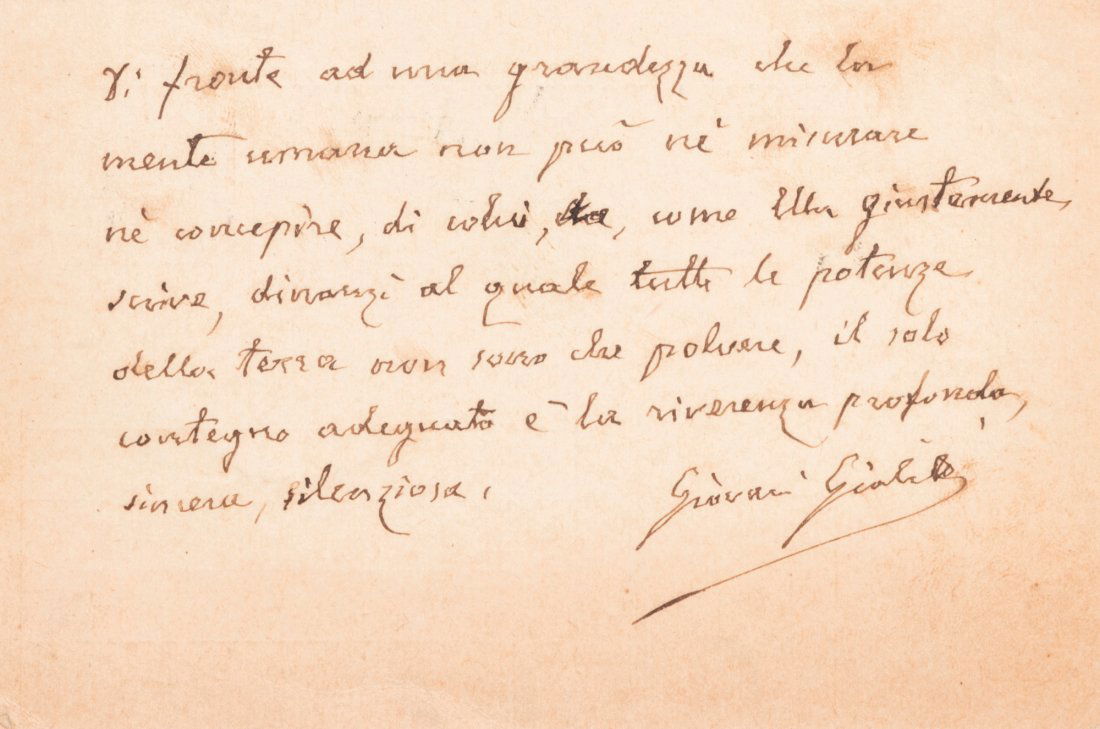 Di fronte ad una grandezza che la
mente umana non può nè misurare
nè concepire, di colui, come Ella giustamente
scrive, dinanzi al quale tutte le potenze
della terra non sono che polvere, il solo
contegno adeguato è la riverenza profonda,
sincera, silenziosa.
Giovanni